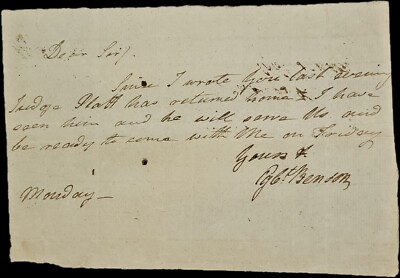 Dear Sir,
Since I wrote you last evening
Judge Platt has returned home & I have
seen him and he will serve Us and
be ready to come with Me on Friday
Yours &
Egbt. Benson
Monday—